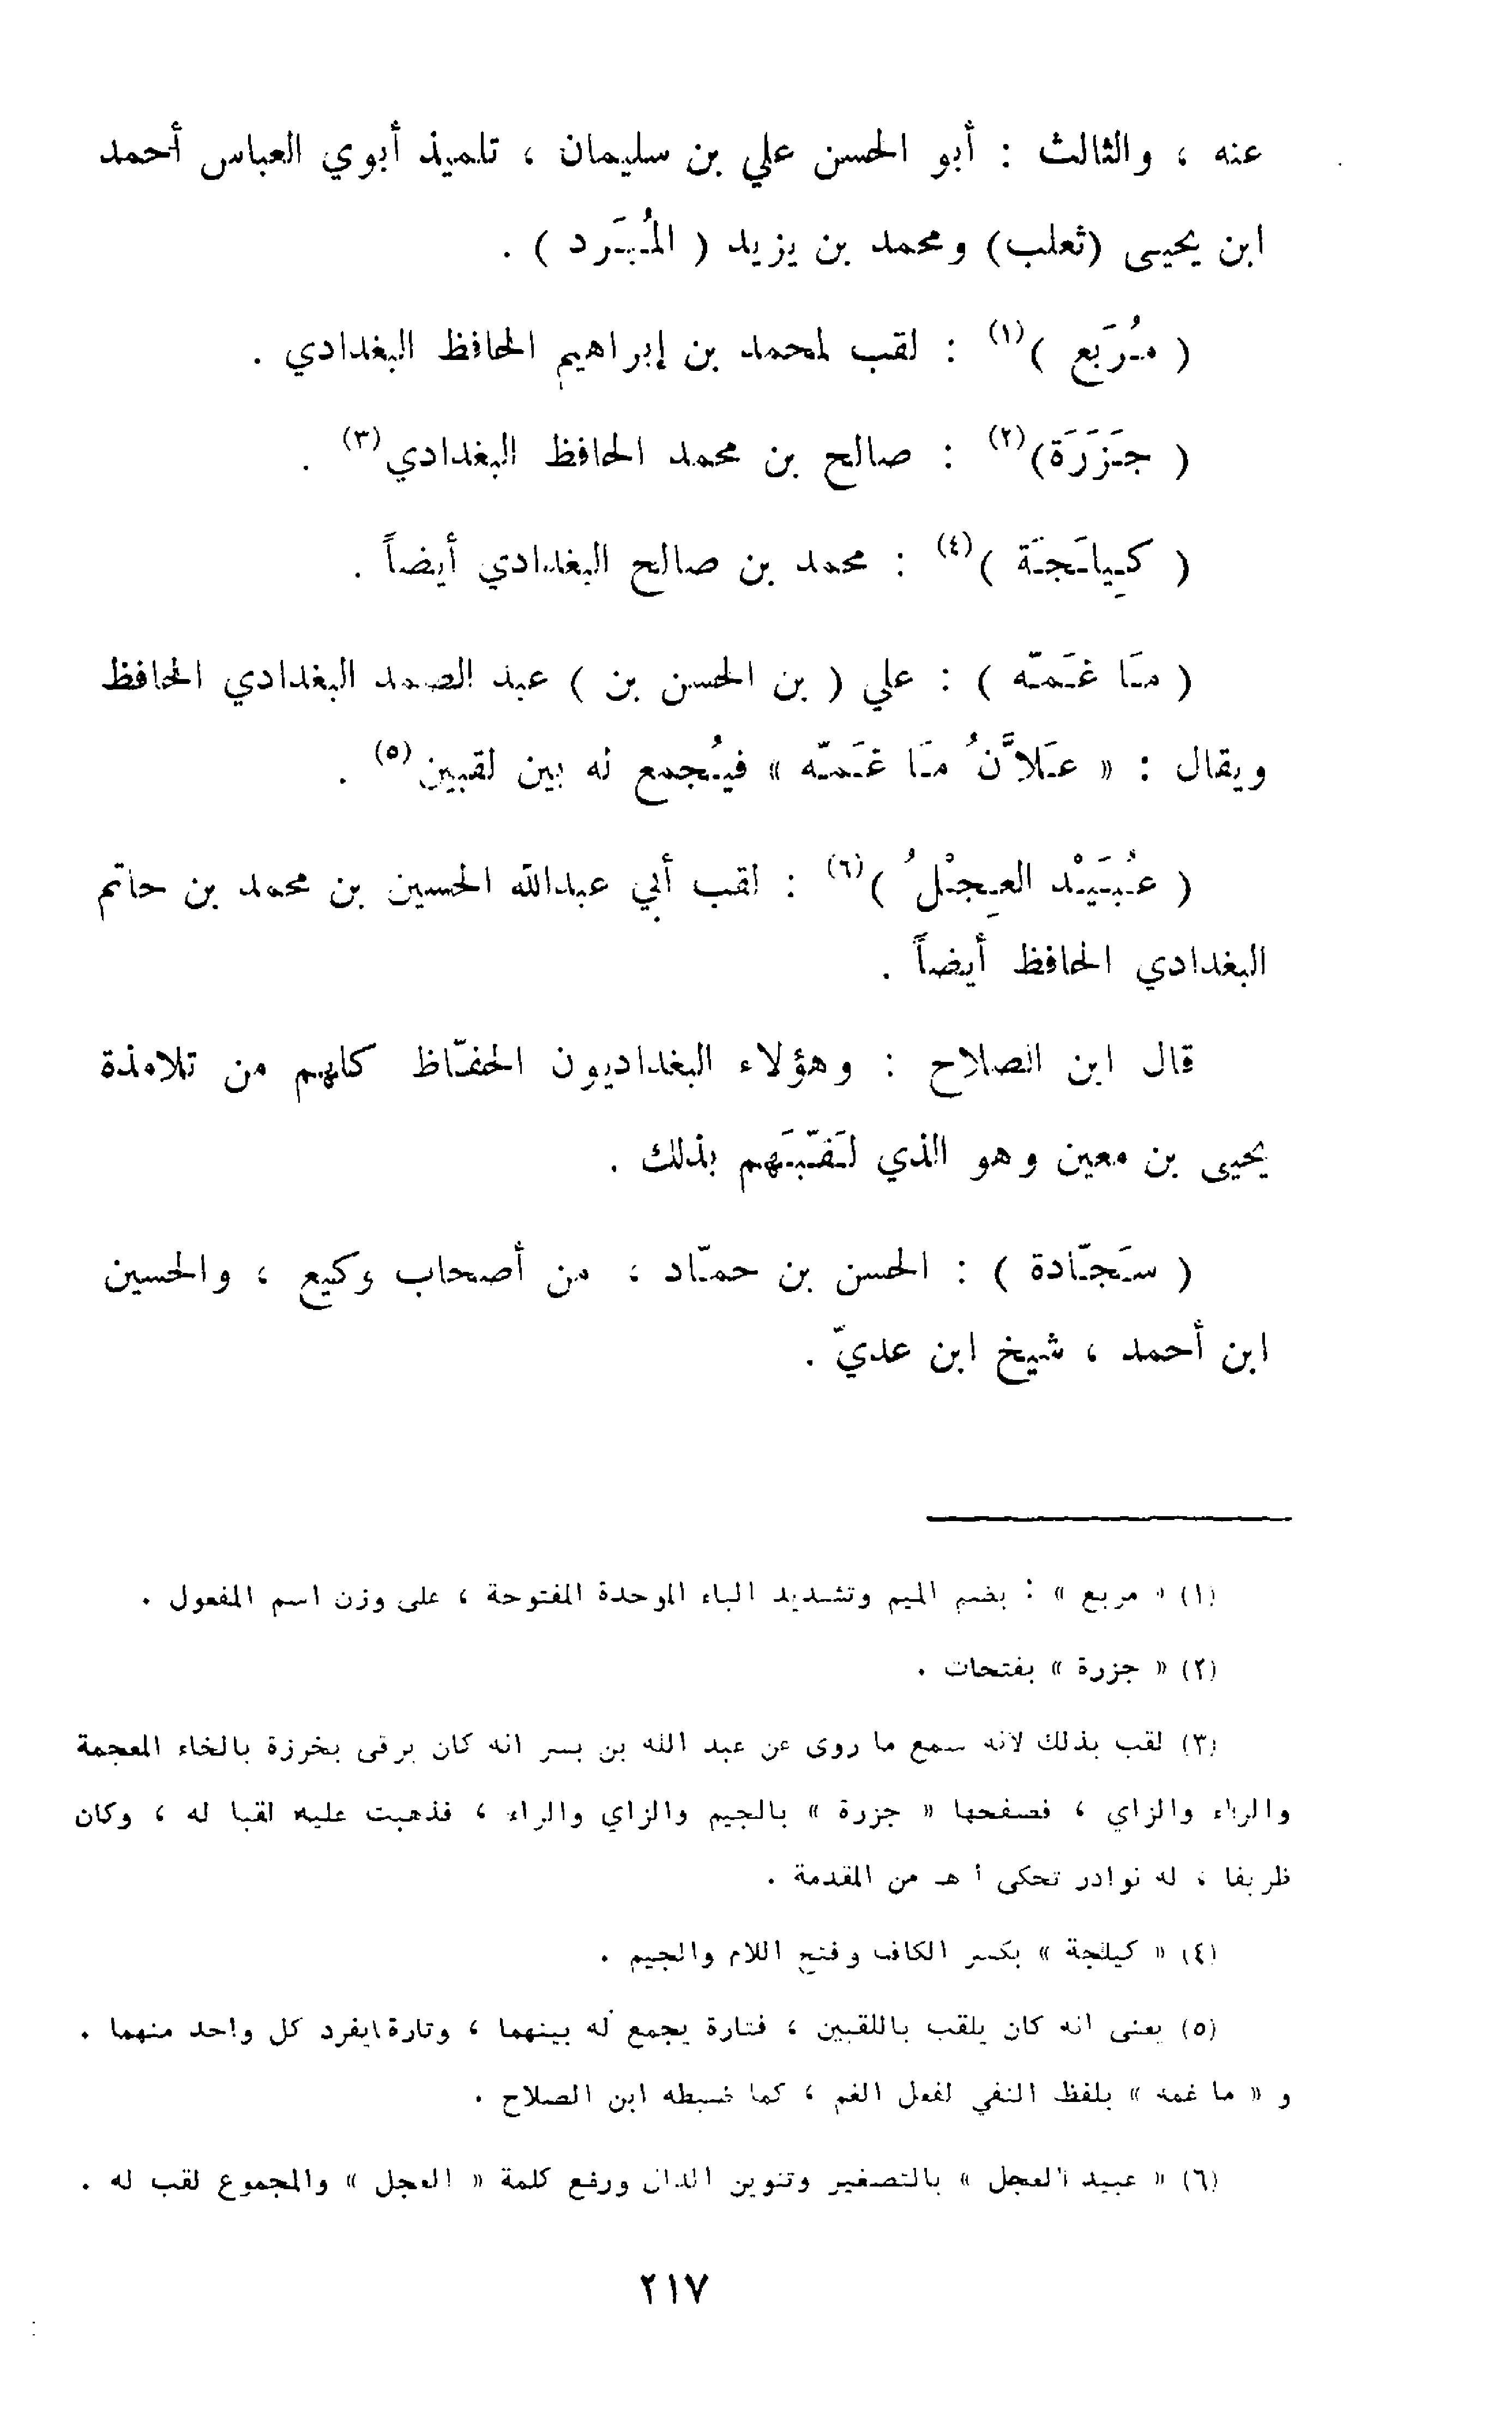 عنه ، والثالث : أبو الحسن علي بن سليمان ، تلميذ أبوي العباس أحمد
ابن يحيى (ثعلب) ومحمد بن يزيد ( المُبَرد ) .
( مُرَبع )(١) : لقب لمحمد بن إبراهيم الحافظ البغدادي .
( جَزَرَة)(٢) : صالح بن محمد الحافظ البغدادي(٣) .
( كِيلَجَة )(٤) : محمد بن صالح البغدادي أيضاً .
( مَا غَمّه ) : علي ( بن الحسن بن ) عبد الصمد البغدادي الحافظ
ويقال : « عَلاَّنُ مَا غَمّه » فيُجمع له بين لقبين(٥) .
( عُبَيْد العِجْلُ )(٦) : لقب أبي عبدالله الحسين بن محمد بن حاتم
البغدادي الحافظ أيضاً .
قال ابن الصلاح : وهؤلاء البغداديون الحفّاظ كلهم من تلامذة
يحيى بن معين وهو الذي لَقّبَهم بذلك .
( سَجّادة ) : الحسن بن حمّاد ، من أصحاب وكيع ، والحسين
ابن أحمد ، شيخ ابن عديّ .
(١) « مربع » : بضم الميم وتشديد الباء الموحدة المفتوحة ، على وزن اسم المفعول .
(٢) « جزرة » بفتحات .
(٣) لقب بذلك لأنه سمع ما روى عن عبد الله بن بسر انه كان يرقى بخرزة بالخاء المعجمة
والراء والزاي ، فصفحها « جزرة » بالجيم والزاي والراء ، فذهبت عليه لقبا له ، وكان
ظريفا ، له نوادر تحكى أ هـ من المقدمة .
(٤) « كيلجة » بكسر الكاف وفتح اللام والجيم .
(٥) يعنى انه كان يلقب باللقبين ، فتارة يجمع له بينهما ، وتارة يفرد كل واحد منهما .
و « ما غمه » بلفظ النفي لفعل الغم ، كما ضبطه ابن الصلاح .
(٦) « عبيد العجل » بالتصغير وتنوين الدال ورفع كلمة « العجل » والمجموع لقب له .
٢١٧